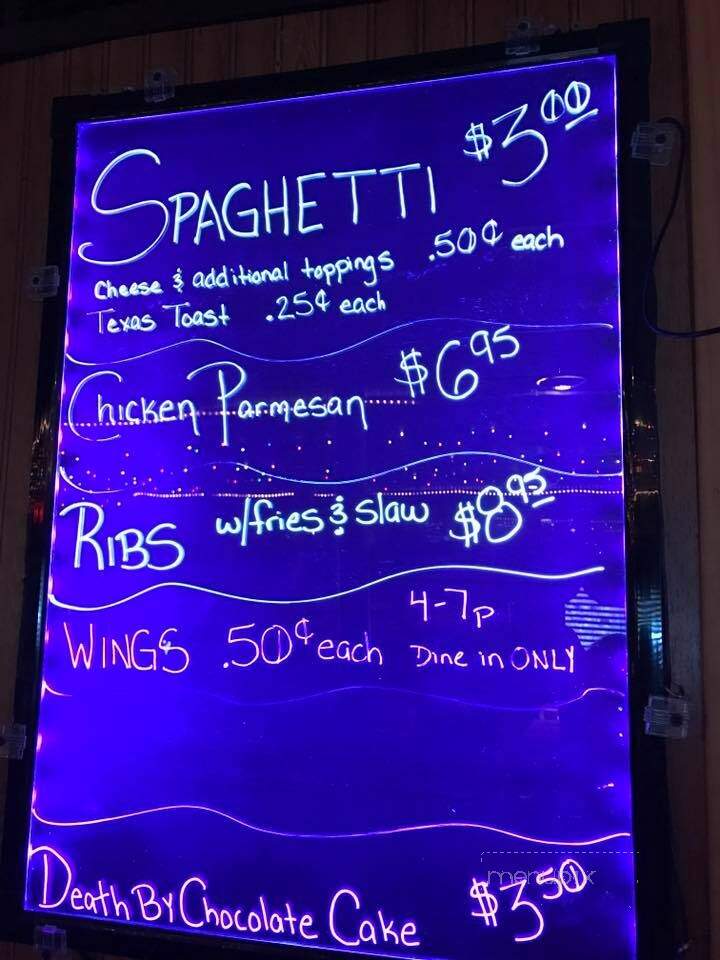 SPAGHETTI $3.00
Cheese & additional toppings .50¢ each
Texas Toast .25¢ each
Chicken Parmesan $6.95
RIBS w/fries & slaw $8.95
4-7p
WINGS .50¢ each Dine in ONLY
Death By Chocolate Cake $3.50